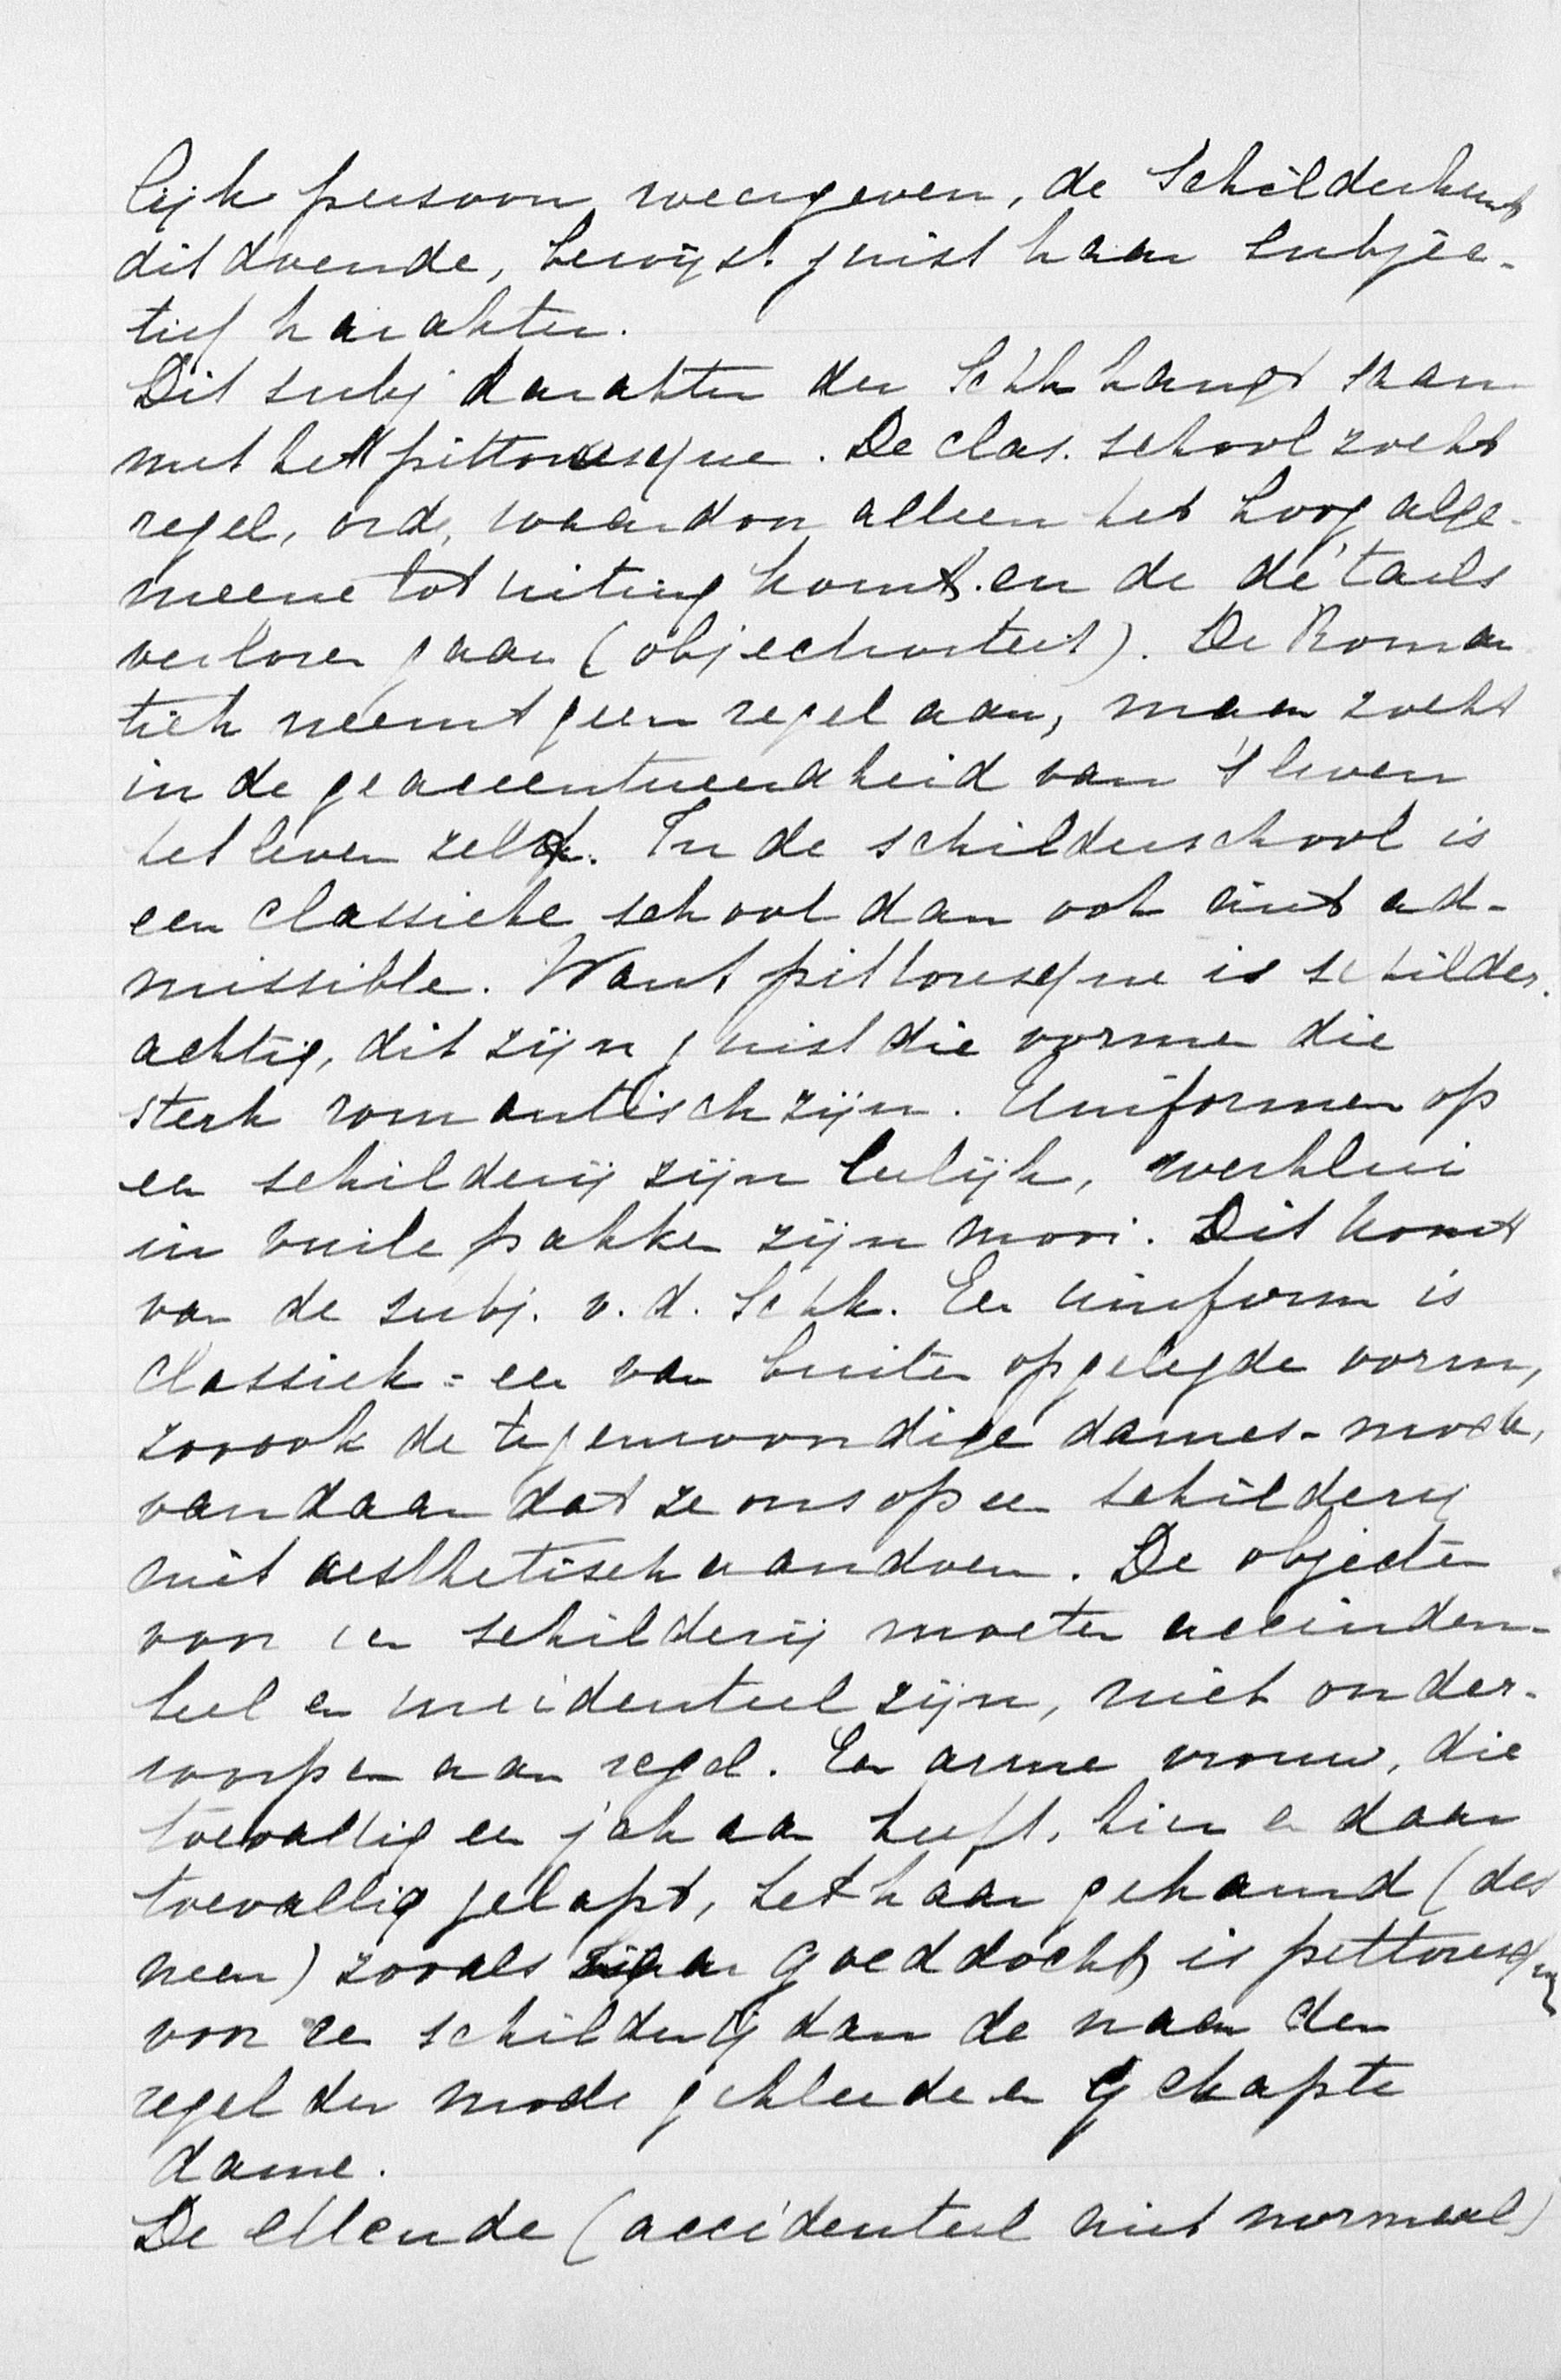 lijk persoon weergeven, de Schilderkunst
dit doende, bewijst juist haar subjec-
tief karakter.
Dit subj karakter der Schk hangt saam
met het pittoresque. De clas. school zocht
regel, orde, waardoor alleen het hoog alge-
meene tot uiting komt en de détails
verloren gaan (objectiviteit). De Roman
tiek neemt geen regel aan, maar zocht
in de geaccentueerdheid van 't leven
het leven zelf. In de schilderschool is
een classieke school dan ook niet ad-
missible. Want pittoresque is schilder-
achtig, dit zijn juist die vormen die
sterk romantisch zijn. Uniformen op
een schilderij zijn leelijk, werklui
in vuile pakken zijn mooi. Dit komt
van de subj. v. d. Schk. Een uniform is
classiek = een van buiten opgelegde vorm,
zooook de tegenwoordige dames-mode,
vandaar dat ze ons op een schilderij
niet aesthetisch aandoen. De objecten
voor een schilderij moeten acciden-
teel en incidenteel zijn, niet onder-
worpen aan regel. Een arme vrouw, die
toevallig een jak aan heeft, hier en daar
toevallig gelapt, het haar gekamd (des
neen) zooals haar goeddocht, is pittoresquer
voor een schilderij dan de naar den
regel der mode gekleede en gekapte
dame.
De ellende (accidenteel niet normaal)